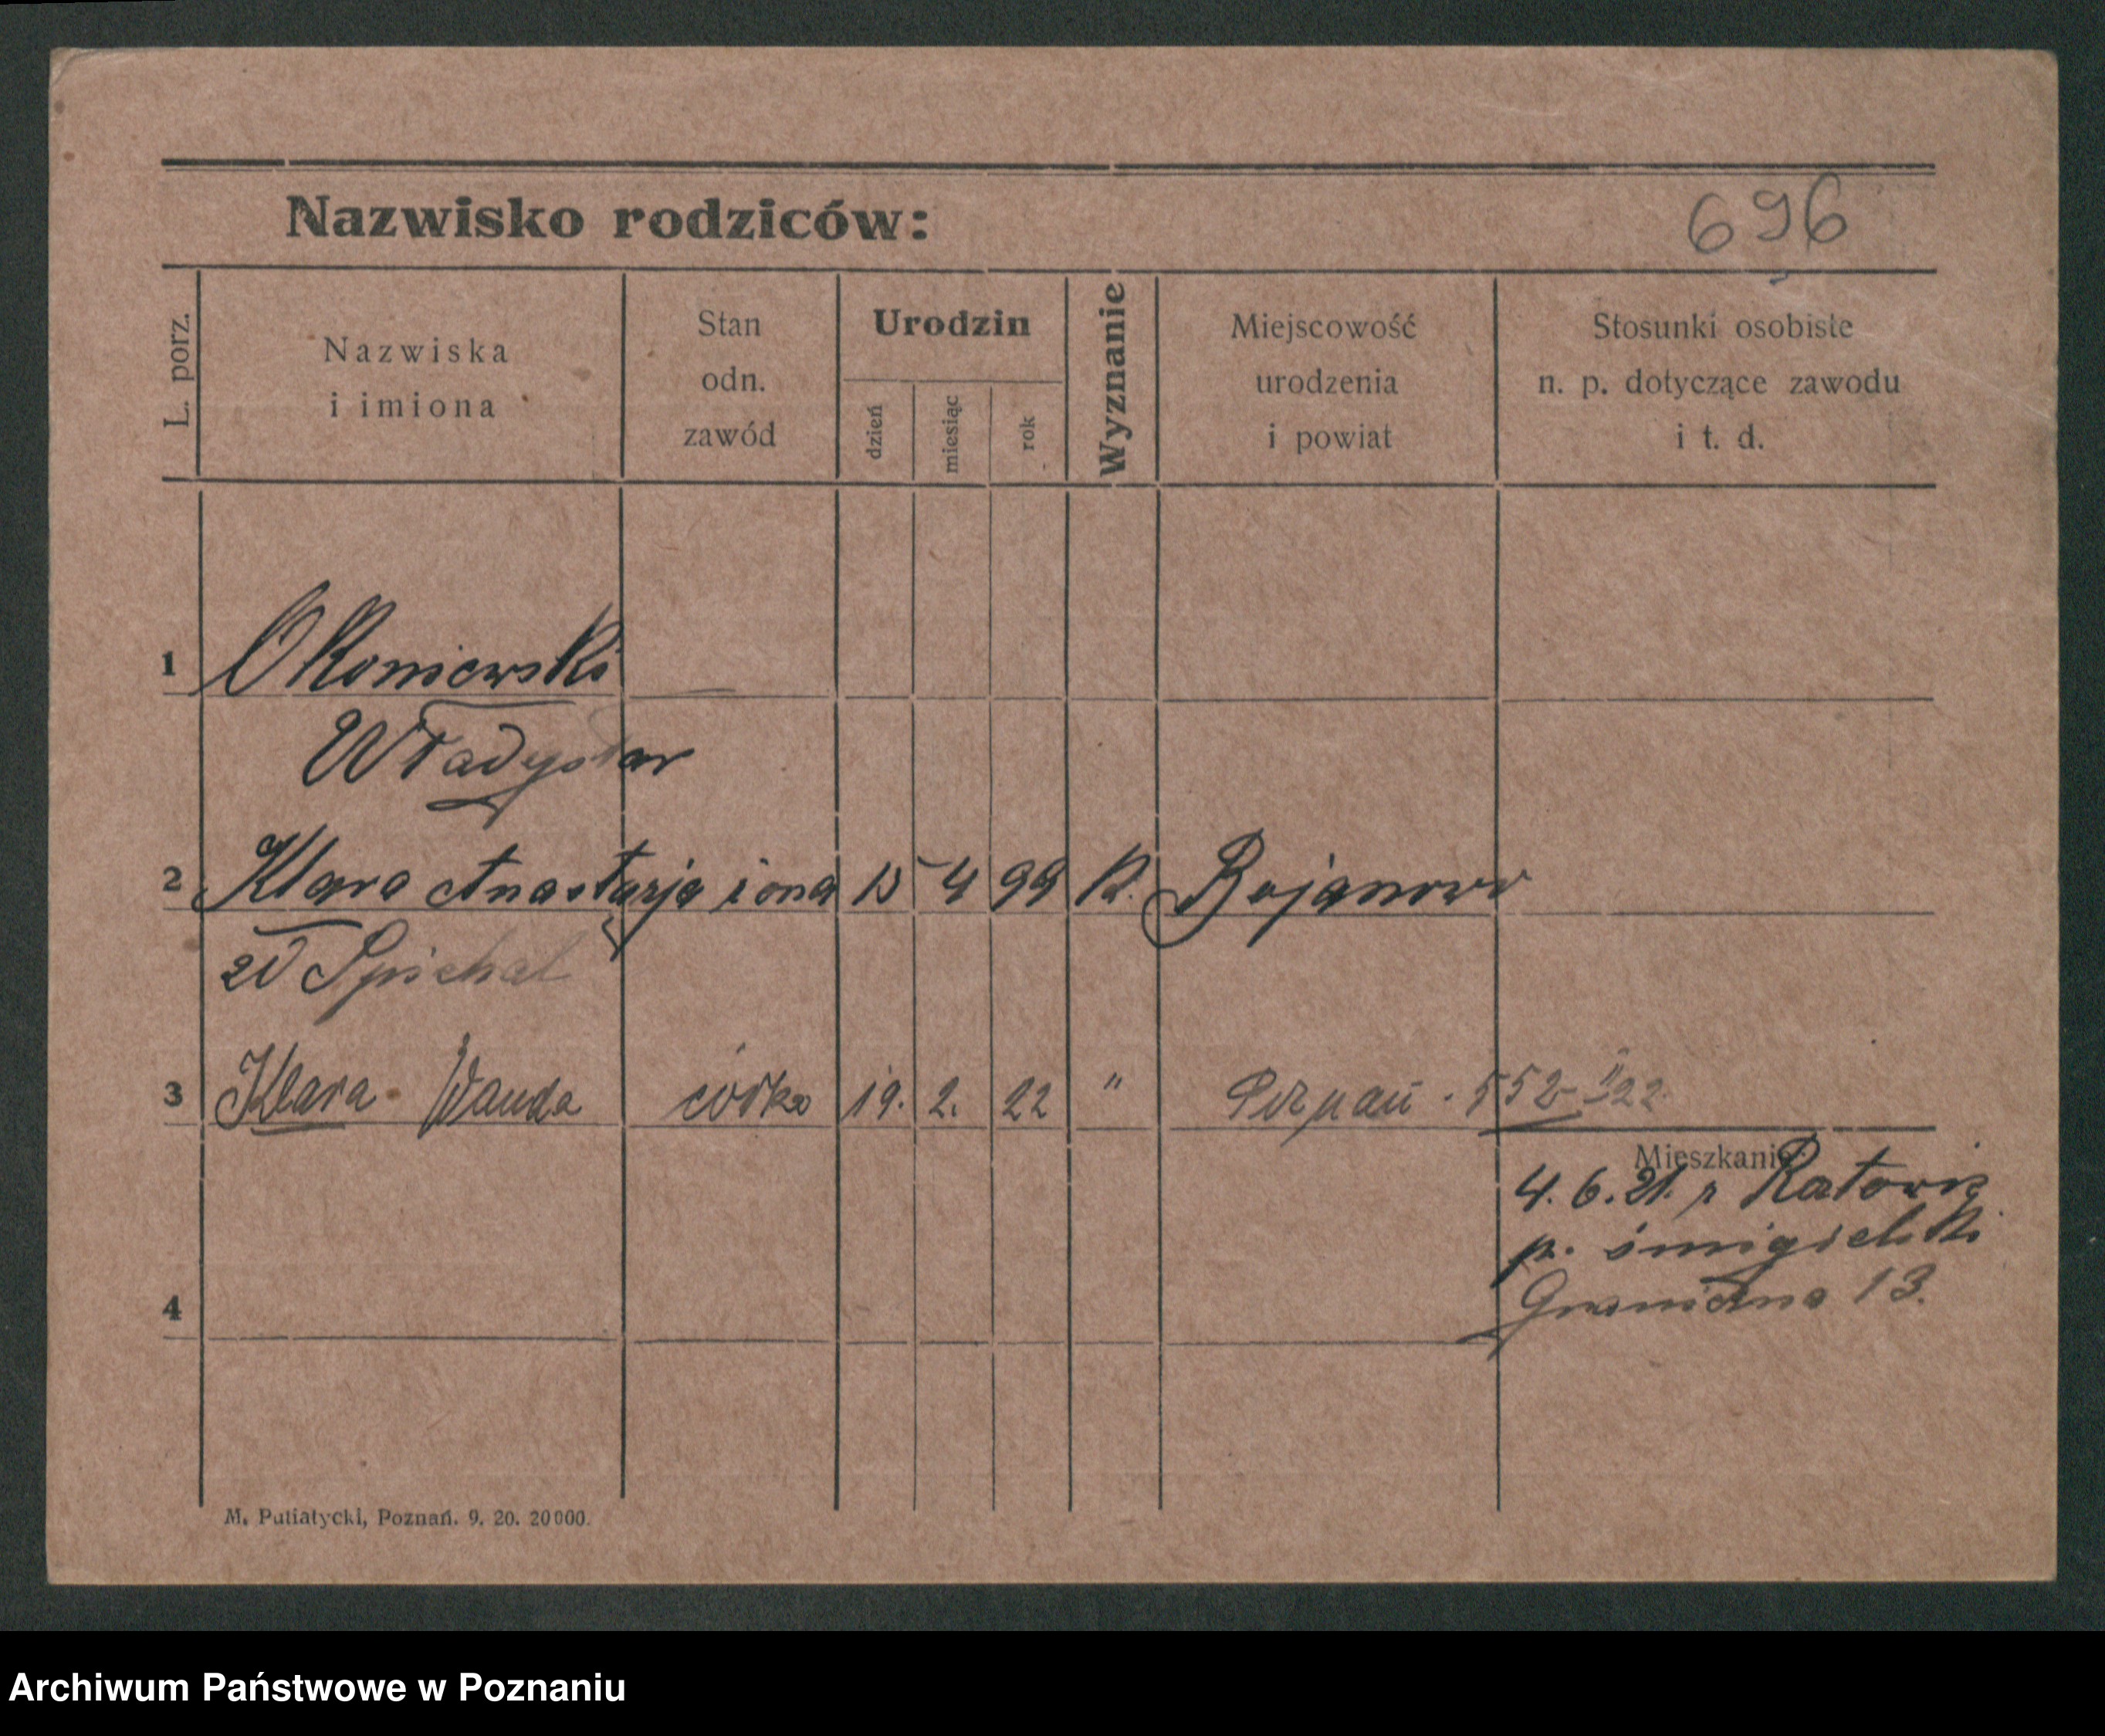 Nazwisko rodziców:
696
L. porz.
Nazwiska
i imiona
Stan
odn.
zawód
Urodzin
dzień
miesiąc
rok
Wyznanie
Miejscowość
urodzenia
i powiat
Stosunki osobiste
n. p. dotyczące zawodu
i t. d.
1 Okoniewski
Władysław
2 Klara Anastazja żona 15 4 99 k. Bojanowo
zd Spichal
3 Klara Wanda córka 19. 2. 22 " Poznań. 552 22.
Mieszkanie:
4. 6. 21. z
p. śmigielski
Graniczna 13.
4
M. Putiatycki, Poznań. 9. 20. 20000.
Archiwum Państwowe w Poznaniu